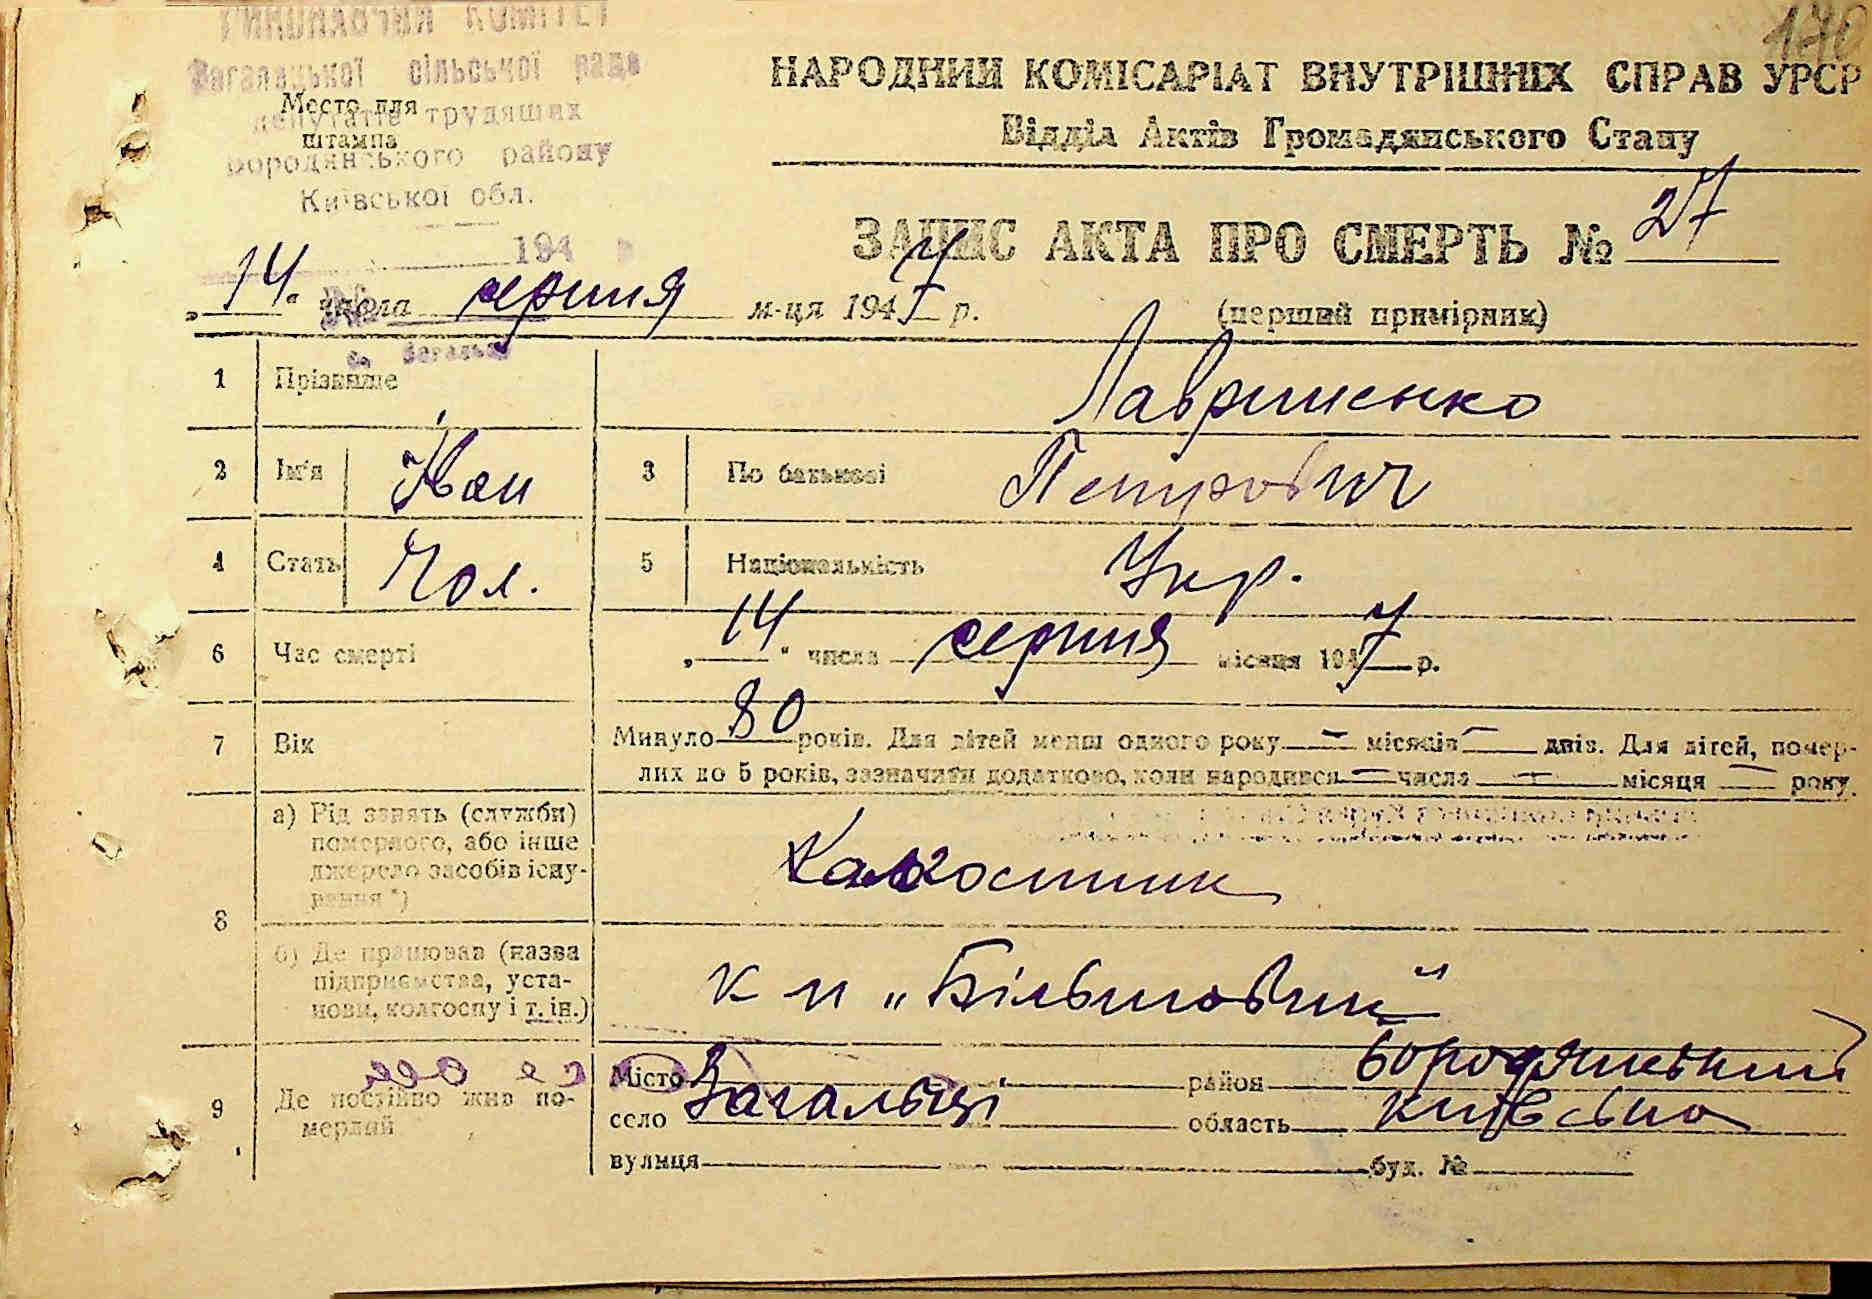 170
ВИКОНАВЧИЙ КОМІТЕТ
Загальцької сільської ради
депутатів трудящих
Бородянського району
Київської обл.
194 р
№
с. Загальці
Место для
штампа
НАРОДНИЙ КОМІСАРІАТ ВНУТРІШНІХ СПРАВ УРСР
Відділ Актів Громадянського Стану
ЗАПИС АКТА ПРО СМЕРТЬ № 27
„14“ числа серпня м-ця 1947 р.
(перший примірник)
1 Прізвище Лавриненко
2 Ім'я Іван 3 По батькові Петрович
4 Стать Чол. 5 Національність Укр.
6 Час смерті „14“ числа серпня місяця 1947 р.
7 Вік Минуло 80 років. Для дітей менш одного року — місяців — днів. Для дітей, помер-
лих до 5 років, зазначити додатково, коли народився — числа — місяця — року.
8 а) Рід занять (служби)
померлого, або інше
джерело засобів існу-
вання *)
Колхосник
б) Де працював (назва
підприємства, уста-
нови, колгоспу і т. ін.)
к п „Більшовик“
9 Де постійно жив по-
мерлий
Місто
село Загальці
район Бородянський
область Київська
вулиця буд. №